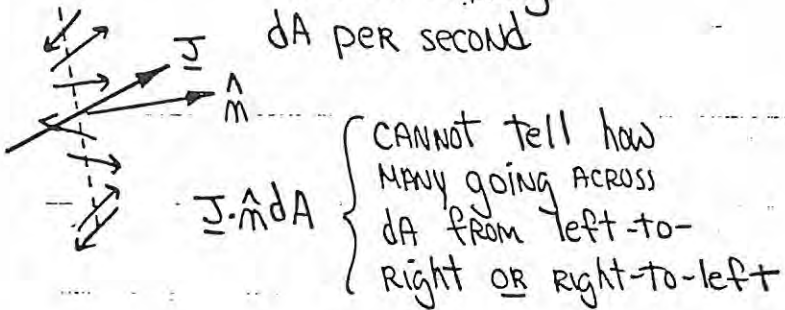 dA per second
J
m̂
J·m̂dA
CANNOT tell how
MANY going ACROSS
dA from left-to-
Right OR Right-to-left